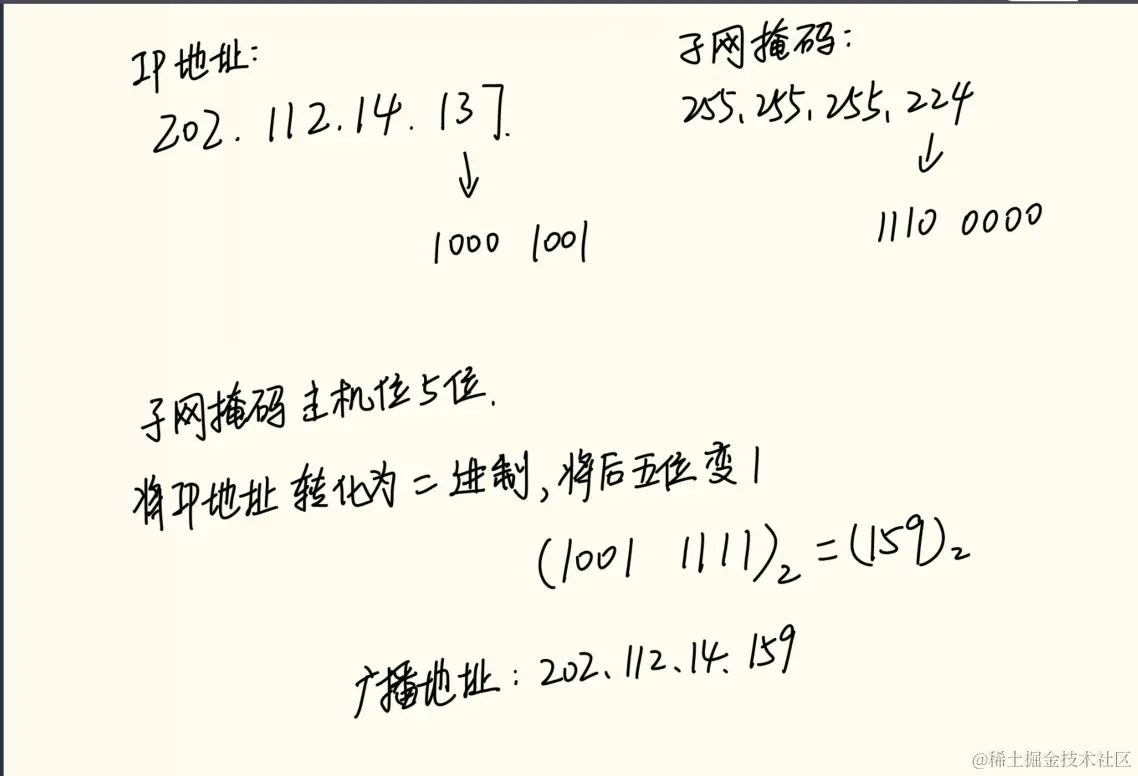 IP地址:
202.112.14.137.
1000 1001
子网掩码:
255、255、255、224
1110 0000
子网掩码主机位5位.
将IP地址转化为二进制,将后五位变1
(1001 1111)₂=(159)₂
广播地址:202、112、14、159
@稀土掘金技术社区